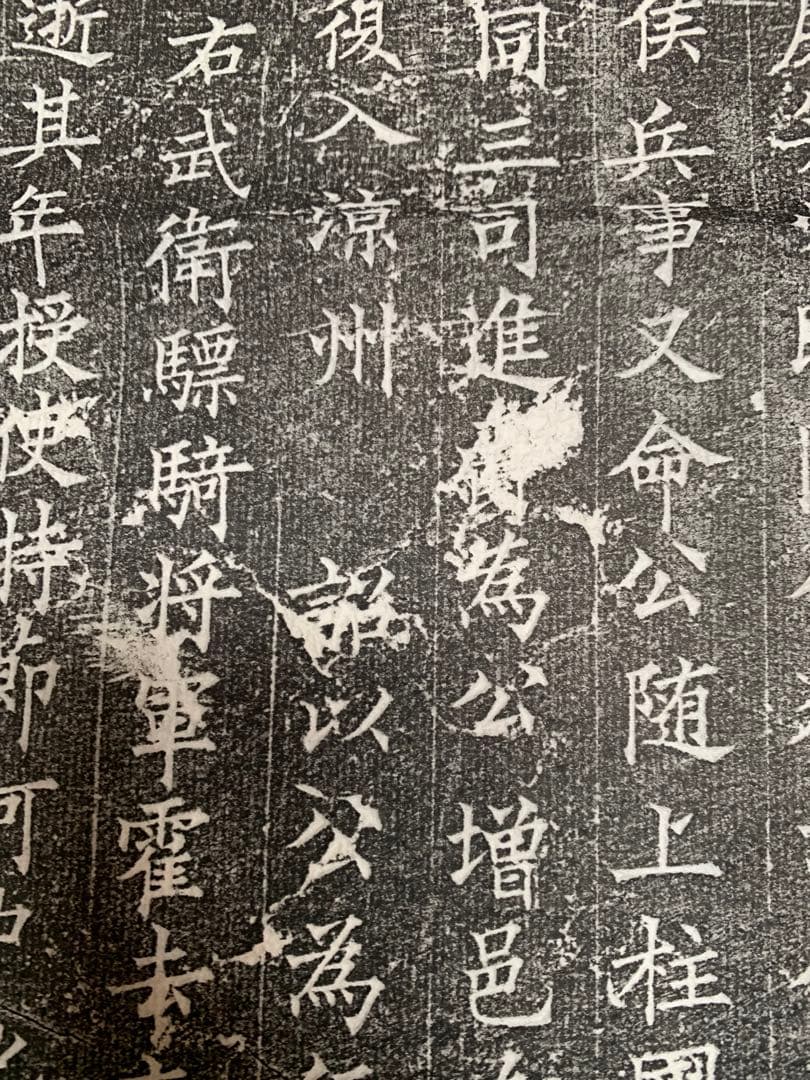 侯兵事又命公随上柱國
同三司進爵為公增邑
復入涼州 詔以公為
右武衛驃騎將軍霍去
逝其年授使持節河